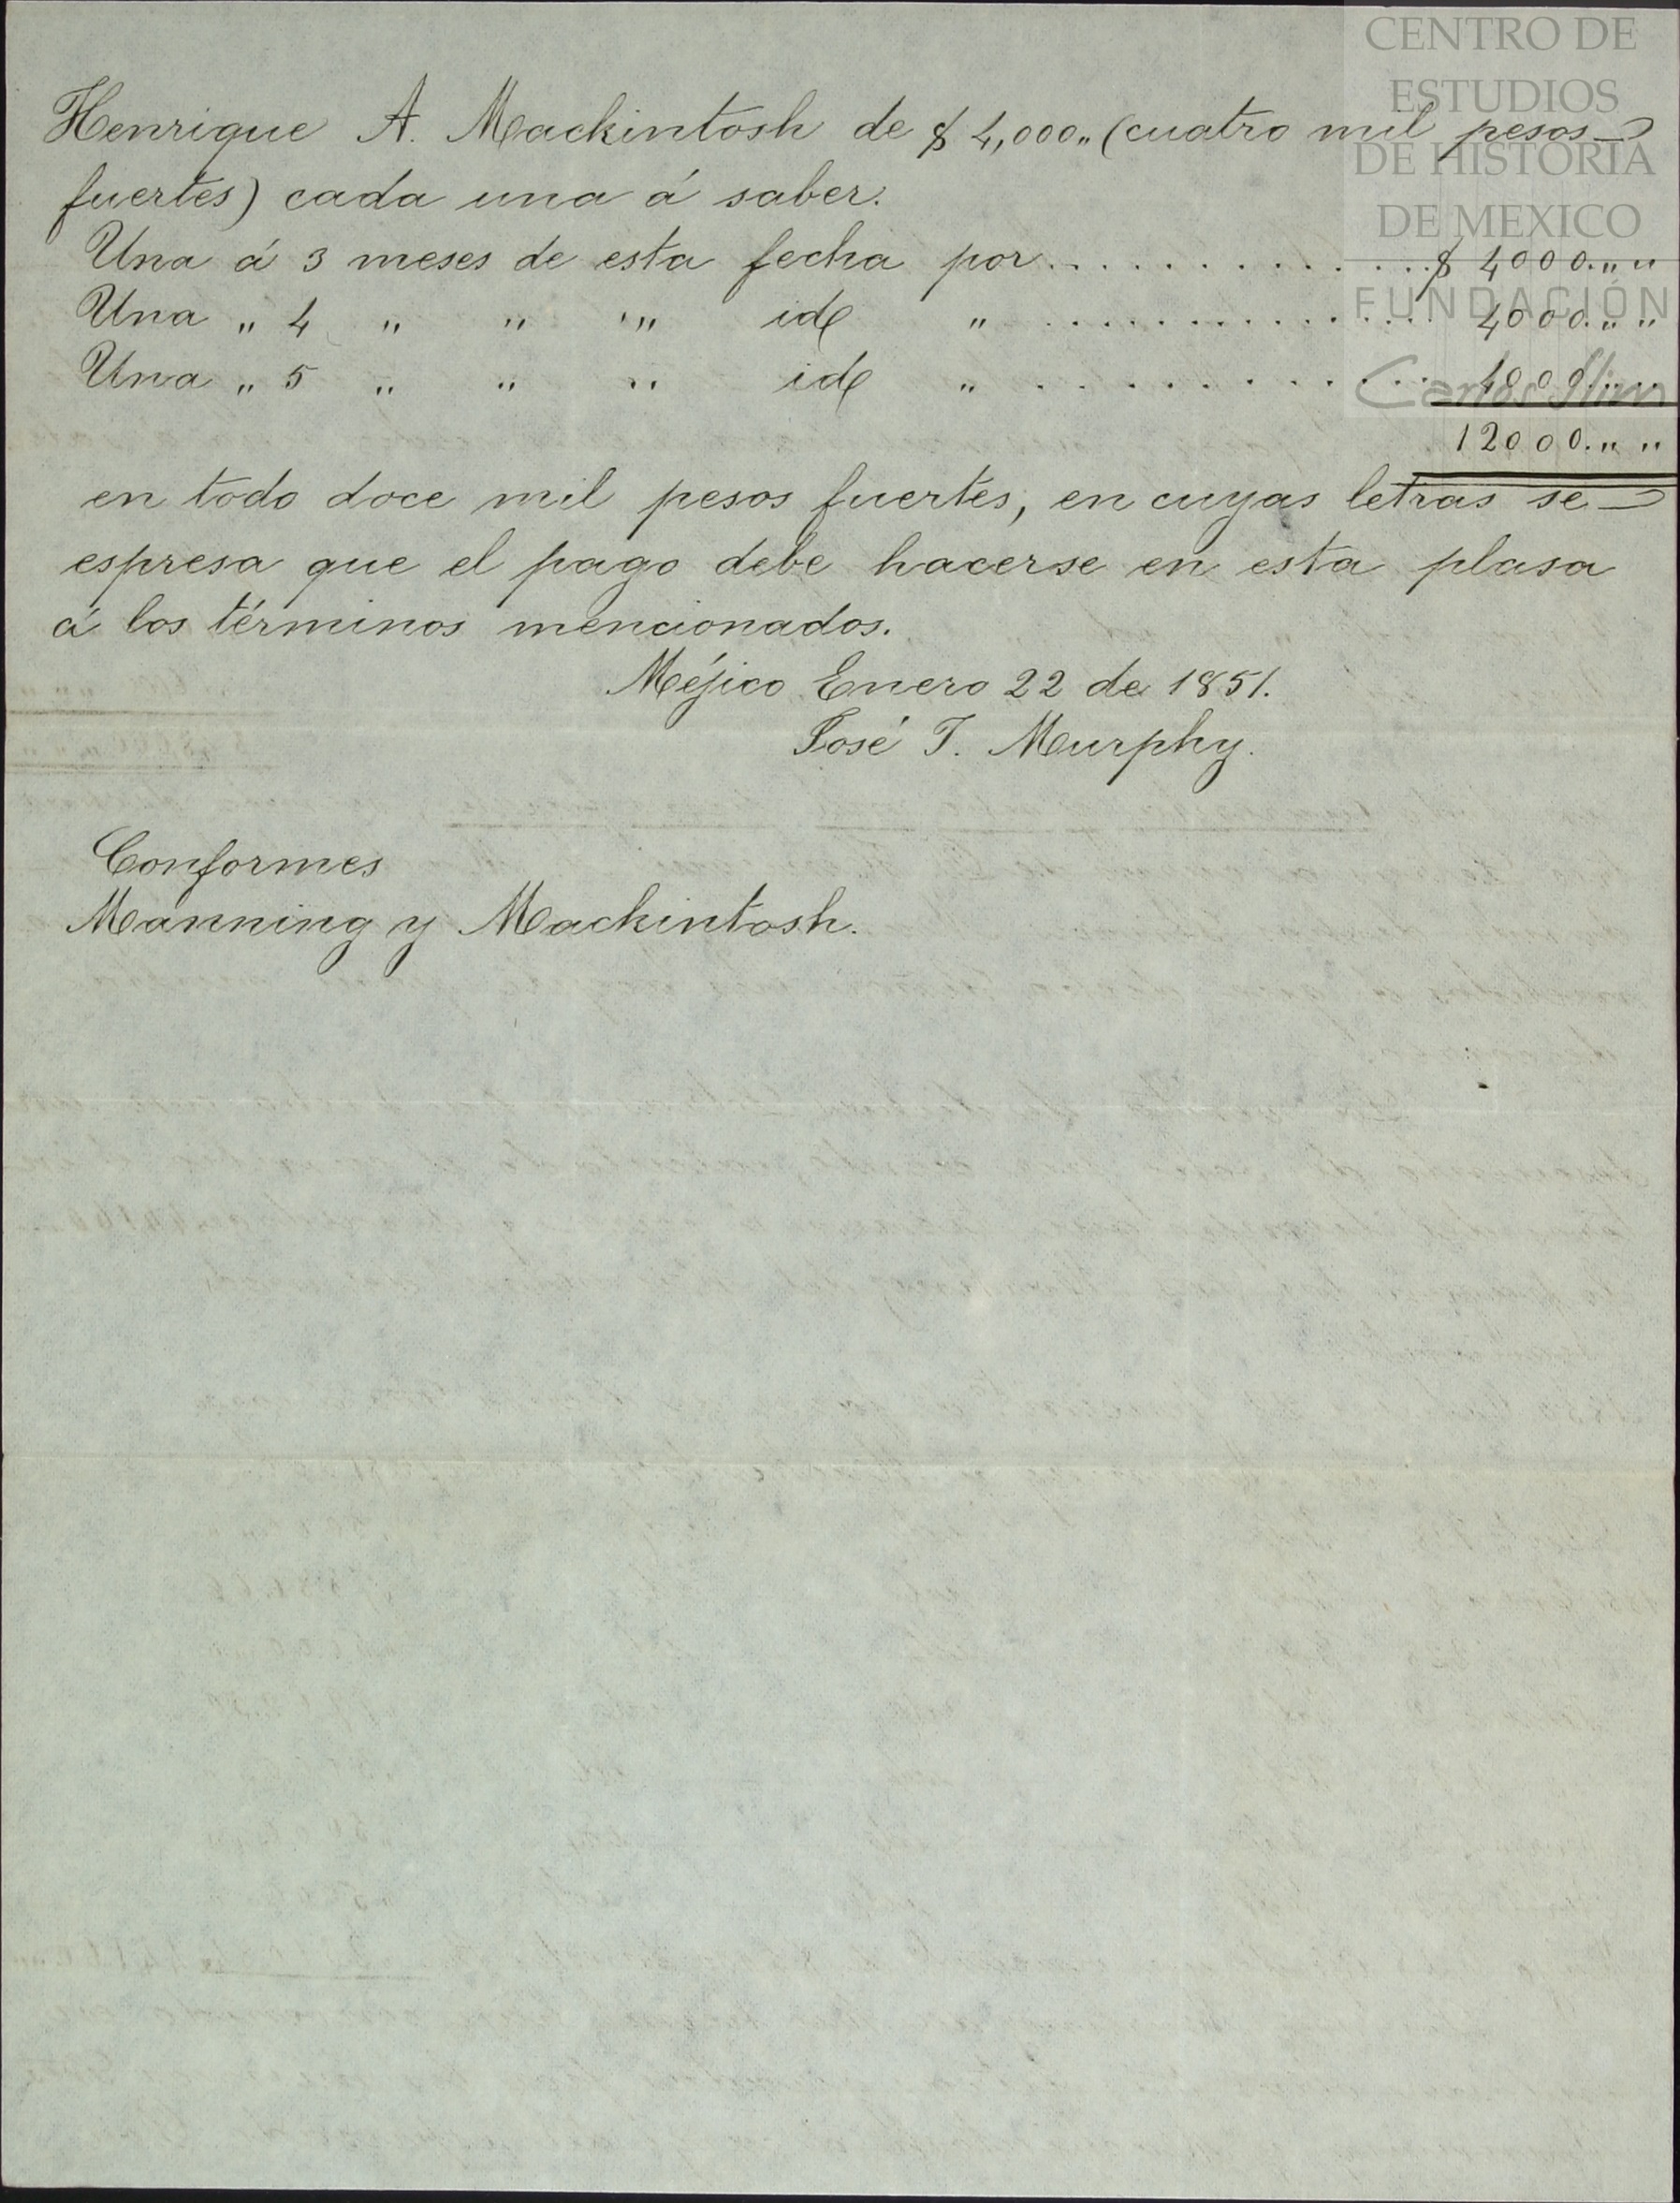 CENTRO DE
ESTUDIOS
DE HISTORIA
DE MEXICO
FUNDACIÓN
Carlos Slim
Henrique A. Mackintosh de $ 4,000,, (cuatro mil pesos
fuertes) cada una á saber.
Una á 3 meses de esta fecha por . . . . . . . . . . . . . $ 4000.,, ,,
Una ,, 4 ,, ,, ,, id ,, . . . . . . . . . . . . . 4000.,, ,,
Una ,, 5 ,, ,, ,, id ,, . . . . . . . . . . . . . 4000.,, ,,
12000.,, ,,
en todo doce mil pesos fuertes, en cuyas letras se
espresa que el pago debe hacerse en esta plasa
á los términos mencionados.
Méjico Enero 22 de 1851.
José T. Murphy.
Conformes
Manning y Mackintosh.